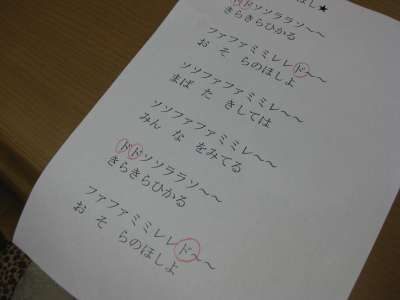 ほし★
ドドソソララソ～～
きらきらひかる
ファファミミレレド～～
お そ らのほしよ
ソソファファミミレ～～
まば た きしては
ソソファファミミレ～～
みん な をみてる
ドドソソララソ～～
きらきらひかる
ファファミミレレド～～
お そ らのほしよ